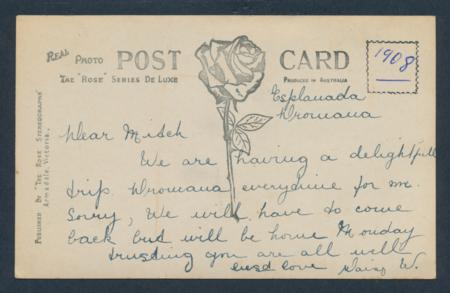 REAL PHOTO POST CARD
THE "ROSE" SERIES DE LUXE
PRODUCED IN AUSTRALIA
PUBLISHED BY "THE ROSE STEREOGRAPHS"
Armadale, Victoria.
1908
Esplanada
Dromana
Dear Mitch
We are having a delightfull
trip. Dromana everytime for me.
Sorry, We will have to come
back but will be home Monday
trusting you are all well
love Daisy W.